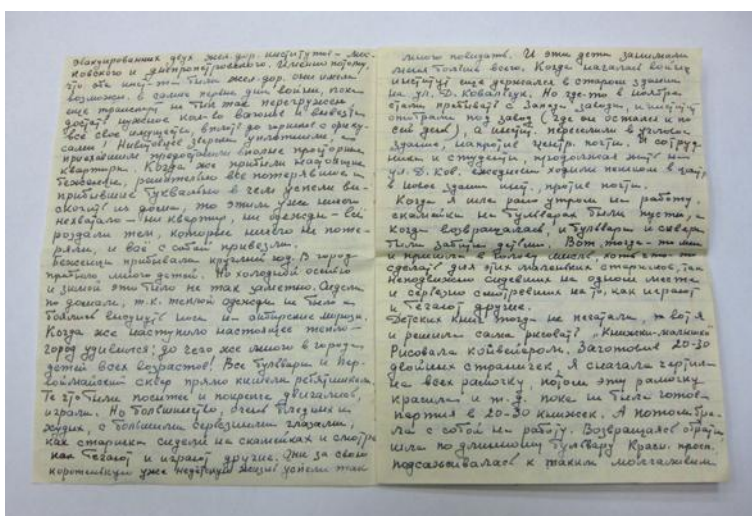 эвакуированных двух жел.дор. институтов – Мос-
ковского и Днепропетровского. Именно потому,
что эти инс-ты были жел.дор. они имели
возможн. в самые первые дни войны, пока
еще транспорт не был так перегружен
достать нужное кол-во вагонов и вывезти
всё свое имущество, вплоть до горшков с фику-
сами! Новосибирск уплотнили, а
приехавшим предоставили вполне просторные
квартиры. Когда же прибыли настоящие
беженцы, решительно все потерявшие и
прибывшие буквально в чем успели вы-
скочить из дома, то этим уже ничего
нехватало – ни квартир, ни одежды – всё
роздали тем, которые ничего не поте-
ряли, и всё с собой привезли.
Беженцы прибывали круглый год. В город
прибыло много детей. Но холодной осенью
и зимой это было не так заметно. Сидели
по домам, т.к. теплой одежды не было и
боялись высунуть носа на сибирские морозы.
Когда же наступило настоящее тепло –
город удивился: до чего же много в городе
детей всех возрастов! Все бульвары и Пер-
вомайский сквер прямо кишели ребятишками.
Те что были посытее и покрепче двигались,
играли. Но большинство, очень бледных и
худых, с большими серьезными глазами,
как старички сидели на скамейках и смотре
как бегают и играют другие. Они за свою
коротенькую уже недетскую жизнь успели так
много повидать. И эти дети занимали
меня больше всего. Когда началась война
институт еще держался в старом здании
на ул. Д. Ковальчук. Но где-то в ноябре
стали прибывать с Запада заводы, и институт
отобрали под завод (где он остался и по
сей день), а инстит. переселили в угловое
здание, напротив центр. почты. И сотруд-
ники и студенты, продолжая жить на
ул. Д. Ков. ежедневно ходили пешком в центр
в новое здание инст., против почты.
Когда я шла рано утром на работу.
скамейки на бульварах были пусты, а
когда возвращалась, и бульвары и скверы
были забиты детьми. Вот тогда-то мне
и пришла в голову мысль, хоть что-то
сделать для этих маленьких старичков, так
неподвижно сидевших на одном месте
и серьезно смотревших на то, как играют
и бегают другие.
Детских книг тогда не печатали, и вот я
и решила сама рисовать "Книжки-малышки"
Рисовала конвейером. Заготовив 20-30
двойных страничек я сначала чертила
на всех рамочку, потом эту рамочку
красила и т.д. пока не была готова
партия в 20-30 книжек. А потом бра-
ла с собой на работу. Возвращаясь обратно,
шла по длинному бульвару Красн. просп.
подсаживалась к таким молчаливым